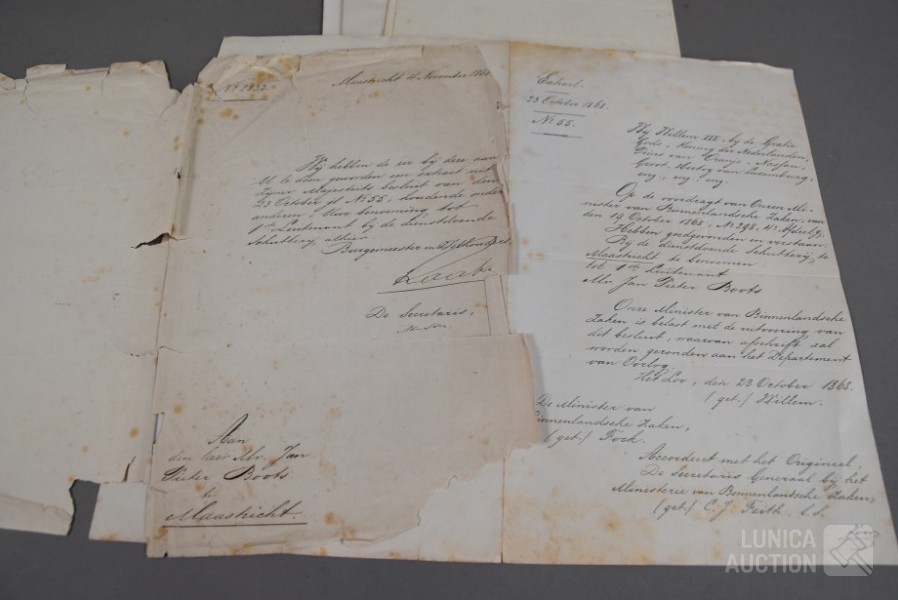 No 1832.
Maastricht 4 November 1868.
Wij hebben de eer bij deze aan
U te doen geworden een extract uit
Zijner Majesteits besluit van den
23 October jl No 55, houdende onder
anderen, Uwe benoeming tot
1sten Lieutenant bij de dienstdoende
Schutterij alhier.
Burgemeester en Wethouders.
De Secretaris,
Aan
den heer Mr. Jan
Pieter Boots
te
Maastricht.
Extract.
23 October 1868.
No 55.
Wij Willem III, bij de Gratie
Gods, Koning der Nederlanden,
Prins van Oranje-Nassau,
Groot Hertog van Luxemburg,
enz, enz, enz.
Op de voordragt van Onzen Mi-
nister van Binnenlandsche Zaken, van
den 19 October 1868, No 298, 4e Afdeeling,
Hebben goedgevonden en verstaan
Bij de dienstdoende Schutterij te
Maastricht te benoemen
tot 1sten Lieutenant
Mr. Jan Pieter Boots
Onze Minister van Binnenlandsche
Zaken is belast met de uitvoering van
dit besluit, waarvan afschrift zal
worden gezonden aan het Departement
van Oorlog.
Het Loo, den 23 October 1868.
(get.) Willem.
De Minister van
Binnenlandsche Zaken,
(get.) Fock.
Accordeert met het Origineel,
De Secretaris Generaal bij het
Ministerie van Binnenlandsche Zaken,
(get.) C. J. Feith. l. S.
LUNICA
AUCTION